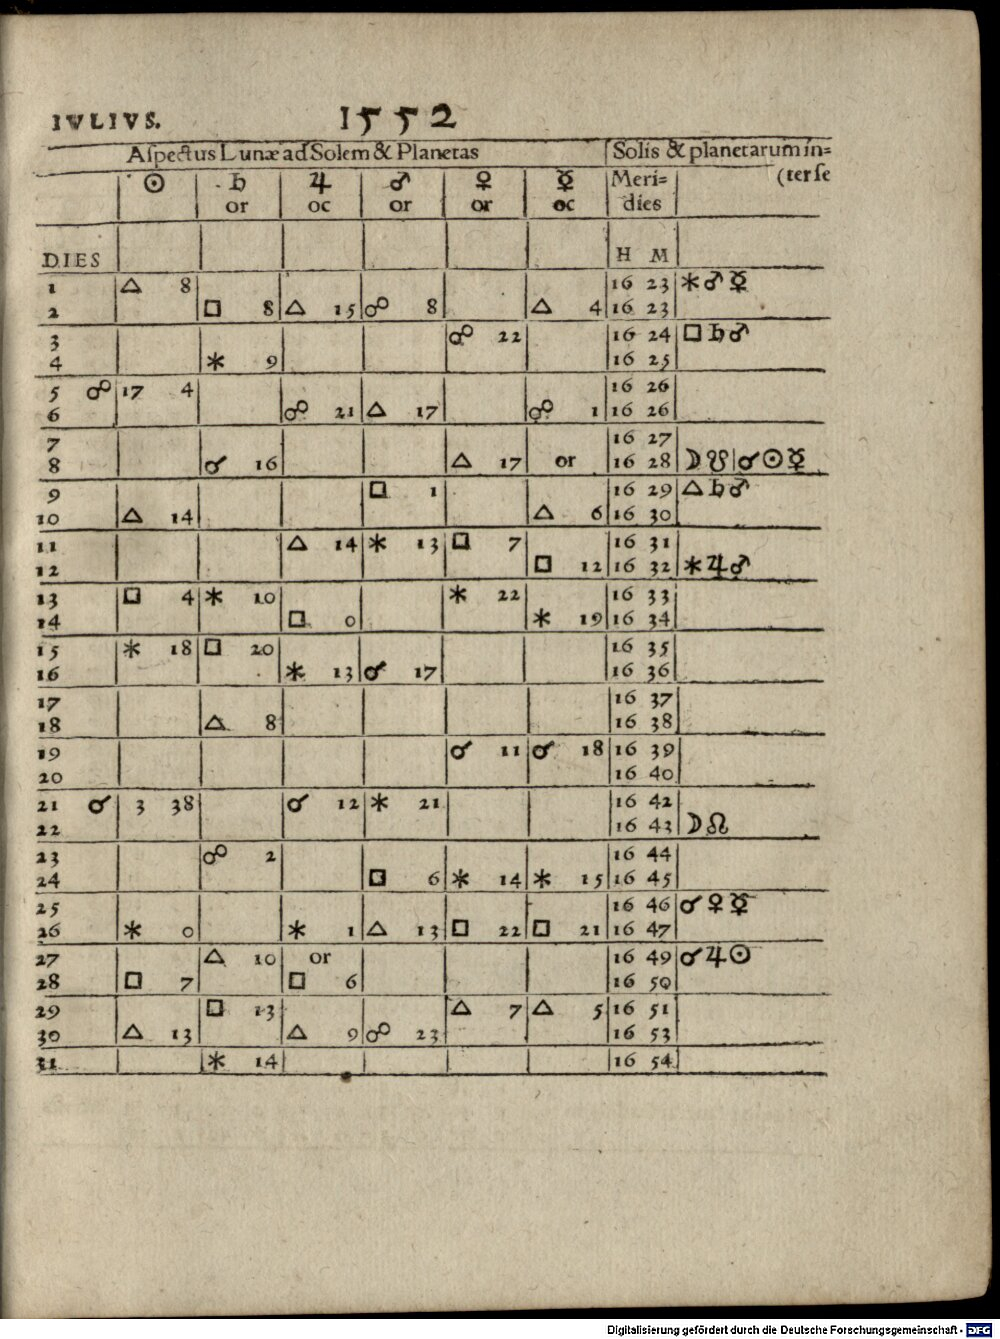 IVLIVS. 1552
Aſpectus Lunæ ad Solem & Planetas Solis & planetarum in=
☉ ♄ ♃ ♂ ♀ ☿ Meri= (terſe
or oc or or oc dies
DIES H M
1 △ 8 16 23 ⚹ ♂ ☿
2 □ 8 △ 15 ☍ 8 △ 4 16 23
3 ☍ 22 16 24 □ ♄ ♂
4 ⚹ 9 16 25
5 ☍ 17 4 16 26
6 ☍ 21 △ 17 ☍ 1 16 26
7 16 27
8 ☌ 16 △ 17 or 16 28 ☽ ☋ | ☌ ☉ ☿
9 □ 1 16 29 △ ♄ ♂
10 △ 14 △ 6 16 30
11 △ 14 ⚹ 13 □ 7 16 31
12 □ 12 16 32 ⚹ ♃ ♂
13 □ 4 ⚹ 10 ⚹ 22 16 33
14 □ 0 ⚹ 19 16 34
15 ⚹ 18 □ 20 16 35
16 ⚹ 13 ☌ 17 16 36
17 16 37
18 △ 8 16 38
19 ☌ 11 ☌ 18 16 39
20 16 40
21 ☌ 3 38 ☌ 12 ⚹ 21 16 42
22 16 43 ☽ ☊
23 ☍ 2 16 44
24 □ 6 ⚹ 14 ⚹ 15 16 45
25 16 46 ☌ ♀ ☿
26 ⚹ 0 ⚹ 1 △ 13 □ 22 □ 21 16 47
27 △ 10 or 16 49 ☌ ♃ ☉
28 □ 7 □ 6 16 50
29 □ 13 △ 7 △ 5 16 51
30 △ 13 △ 9 ☍ 23 16 53
31 ⚹ 14 16 54
Digitalisierung gefördert durch die Deutsche Forschungsgemeinschaft - DFG